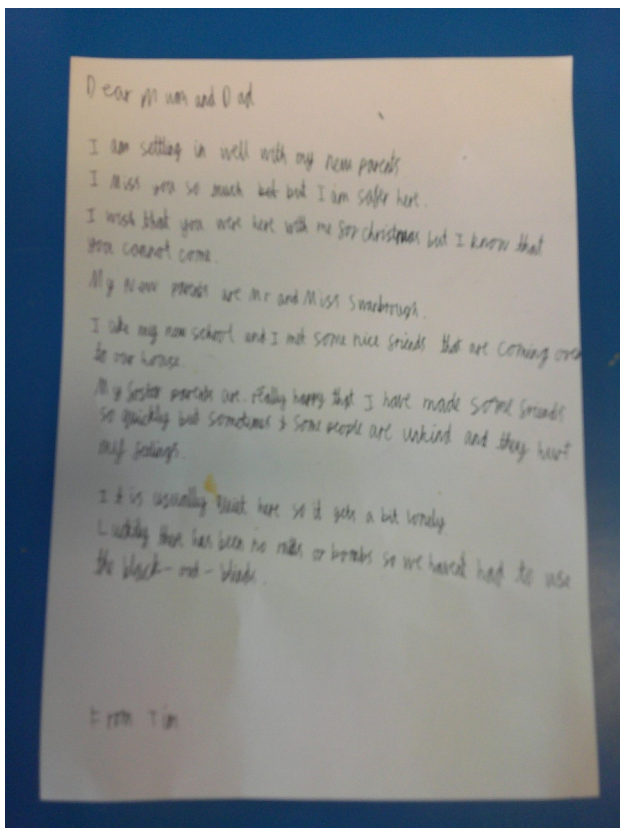 Dear Mum and Dad
I am settling in well with my new parents
I Miss you so much bet but I am safer here.
I wish that you were here with me for christmas but I know that
you cannot come.
My New parents are Mr and Miss Swarbrough.
I like my new school and I met some nice friends that are coming over
to our house.
My foster parents are really happy that I have made some friends
so quickly but sometimes some people are unkind and they hurt
my feelings.
I it is usually quiet here so it gets a bit lonely
Luckily there has been no raids or bombs so we havent had to use
the black-out-blinds.
From Tim